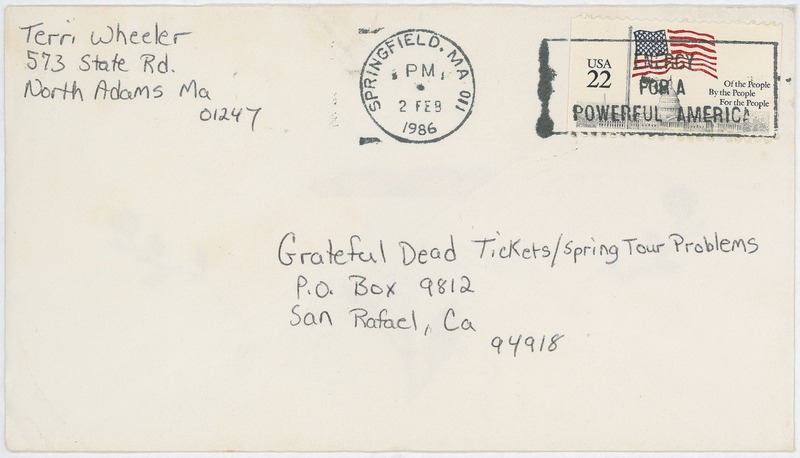 Terri Wheeler
573 State Rd.
North Adams Ma
01247
SPRINGFIELD, MA 011
PM
2 FEB
1986
USA
22
Of the People
By the People
For the People
ENERGY
FOR A
POWERFUL AMERICA
Grateful Dead Tickets/Spring Tour Problems
P.O. Box 9812
San Rafael, Ca
94918